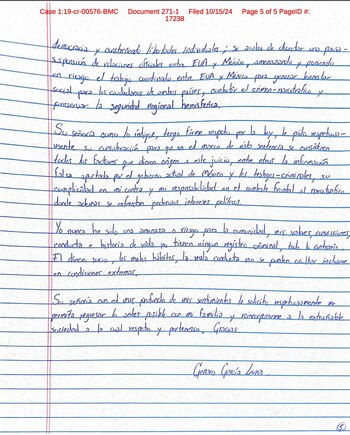 Case 1:19-cr-00576-BMC Document 271-1 Filed 10/15/24 Page 5 of 5 PageID #:
17238
democracia y cuarteando libertades individuales; se acaba de decretar una pausa-
suspensión de relaciones oficiales entre EUA y México, amenazando y poniendo
en riesgo el trabajo coordinado entre EUA y México para generar bienestar
social para los ciudadanos de ambos países, combatir el crimen-narcotráfico y
preservar la seguridad regional hemisférica.
Su señoría como lo indiqué, tengo firme respeto por la ley, le pido respetuosa-
mente su consideración para que en el marco de esta sentencia se consideren
todos los factores que dieron origen a este juicio, entre otros la información
falsa aportada por el gobierno actual de México y los testigos-criminales, su
complicidad en mi contra y mi responsabilidad en el combate frontal al narcotráfico
donde actores se enfrentan poderosos intereses políticos.
Yo nunca he sido una amenaza o riesgo para la comunidad, mis valores, convicciones,
conducta e historia de vida no tienen ningún registro criminal, todo lo contrario.
El dinero sucio, los malos hábitos, la mala conducta no se pueden ocultar incluso
en condiciones extremas.
Su señoría con el más profundo de mis sentimientos le solicito respetuosamente me
permita regresar lo antes posible con mi familia y reincorporarme a la entrañable
sociedad a la cual respeto y pertenezco. Gracias.
Genaro García Luna.
5